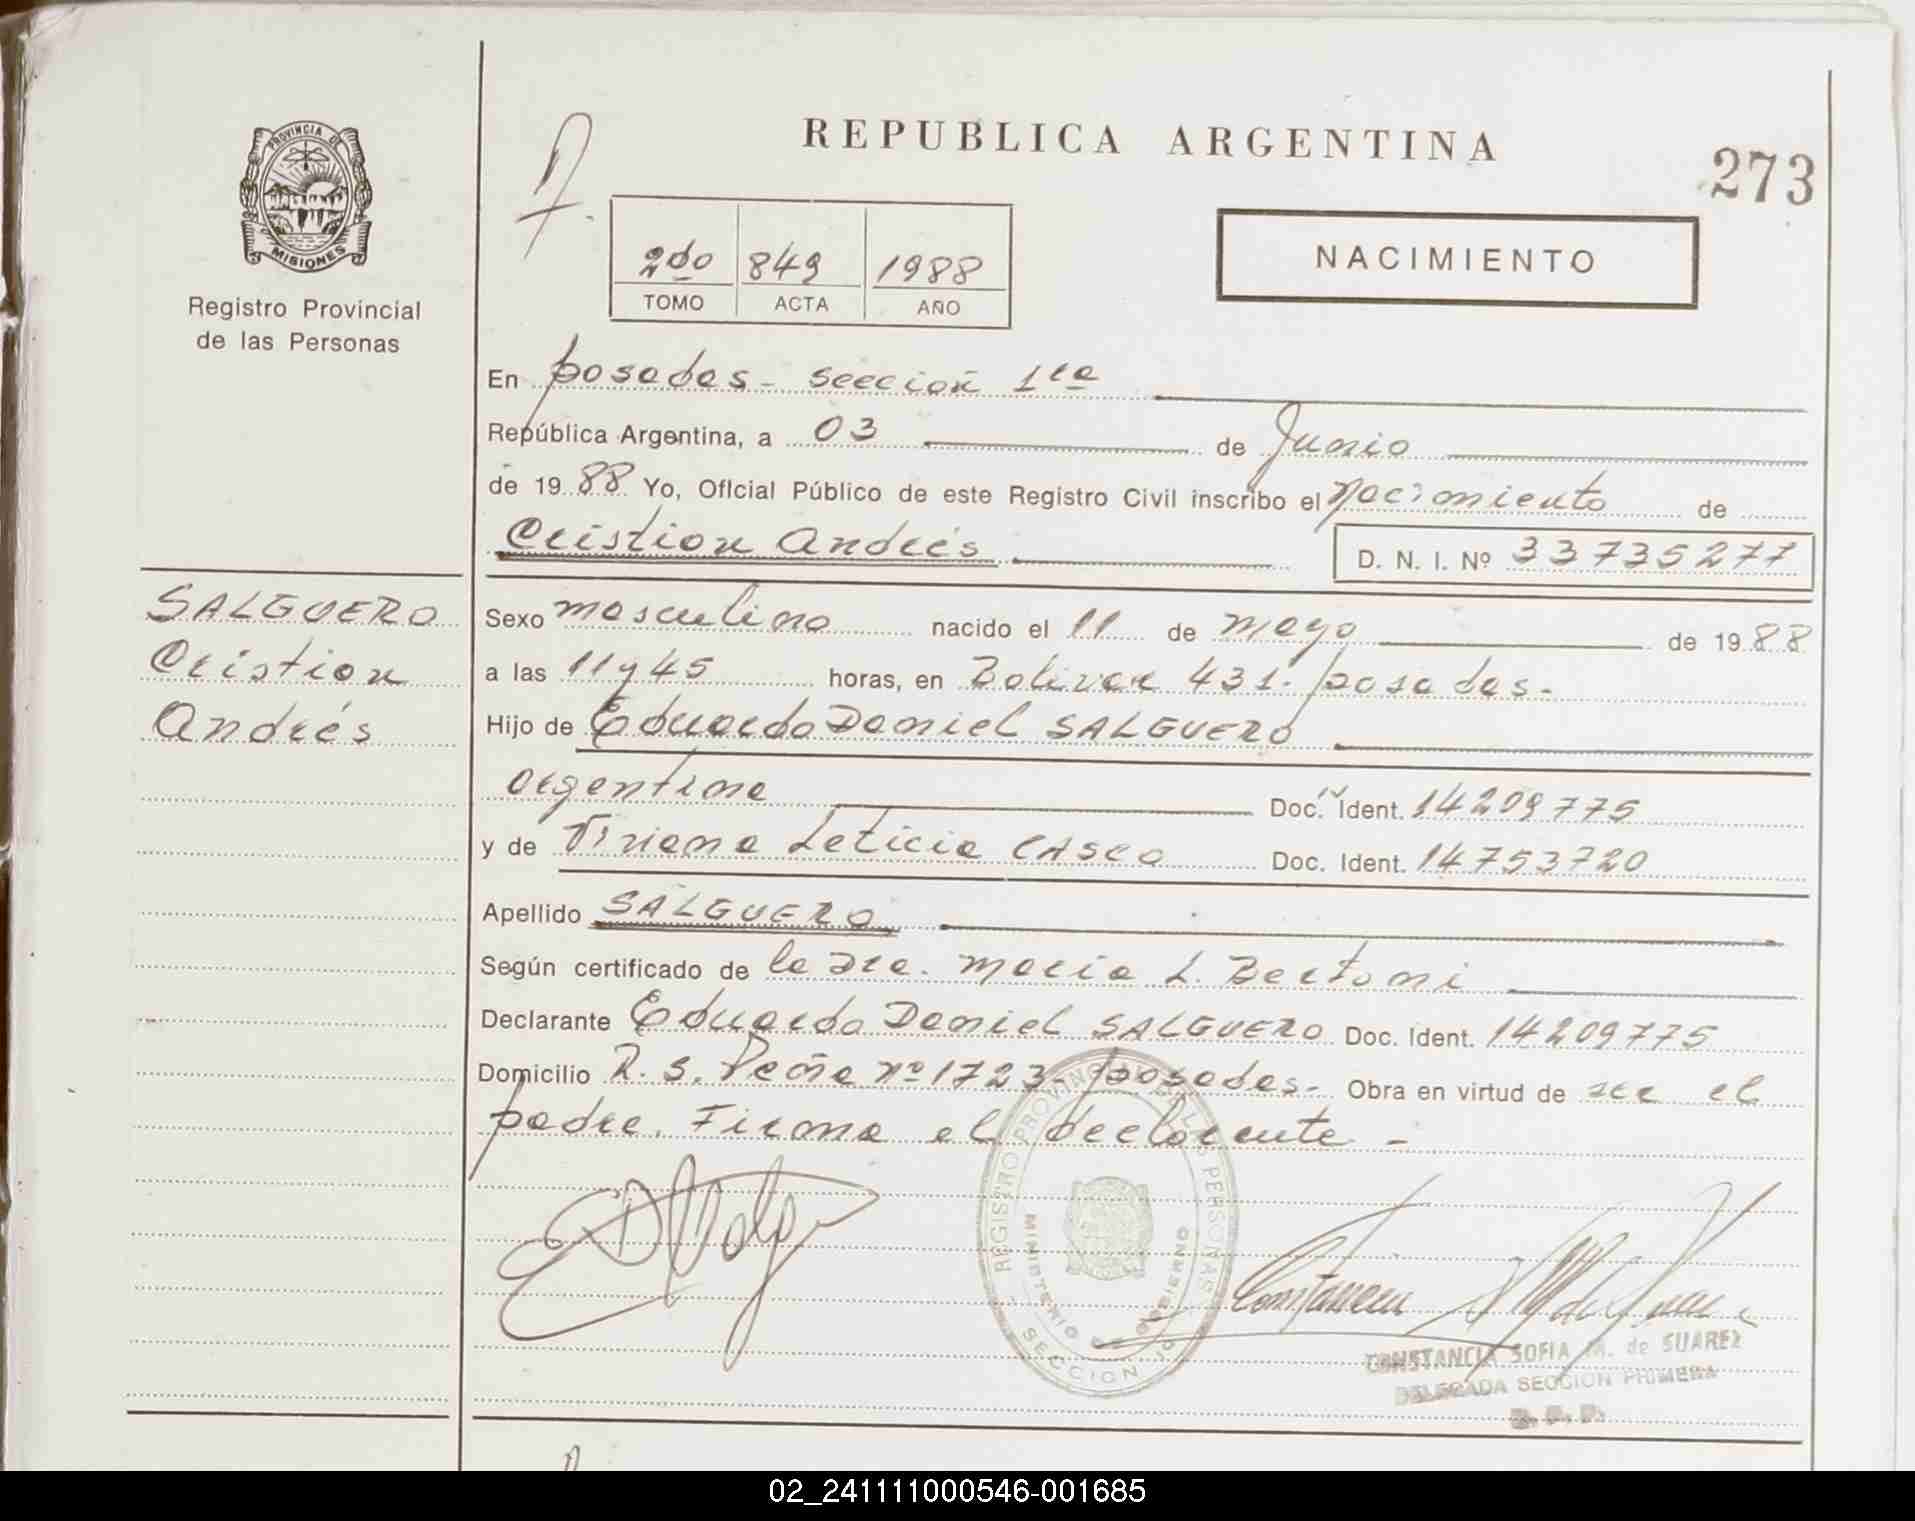 REPUBLICA ARGENTINA
273
PROVINCIA DE
MISIONES
Registro Provincial
de las Personas
2do 849 1988
TOMO ACTA AÑO
NACIMIENTO
En posadas - sección 1ra
República Argentina, a 03 de Junio
de 1988 Yo, Oficial Público de este Registro Civil inscribo el nacimiento de
Cristian Andrés D. N. I. Nº 33735277
SALGUERO
Cristian
Andrés
Sexo masculino nacido el 11 de mayo de 1988
a las 11 y 45 horas, en Bolivar 431. posadas.-
Hijo de Eduardo Daniel SALGUERO
argentina Doc. Ident. 14209775
y de Viviana Leticia CASCO Doc. Ident. 14753720
Apellido SALGUERO
Según certificado de la Dra. María L. Bertoni
Declarante Eduardo Daniel SALGUERO Doc. Ident. 14209775
Domicilio R. S. Peña nº 1723- posadas.- Obra en virtud de ser el
padre. Firma el declarante -
REGISTRO PROVINCIAL DE LAS PERSONAS
MINISTERIO DE GOBIERNO
SECCION 1º
CONSTANCIA SOFIA M. de SUAREZ
DELEGADA SECCION PRIMERA
R. P. P.
02_241111000546-001685